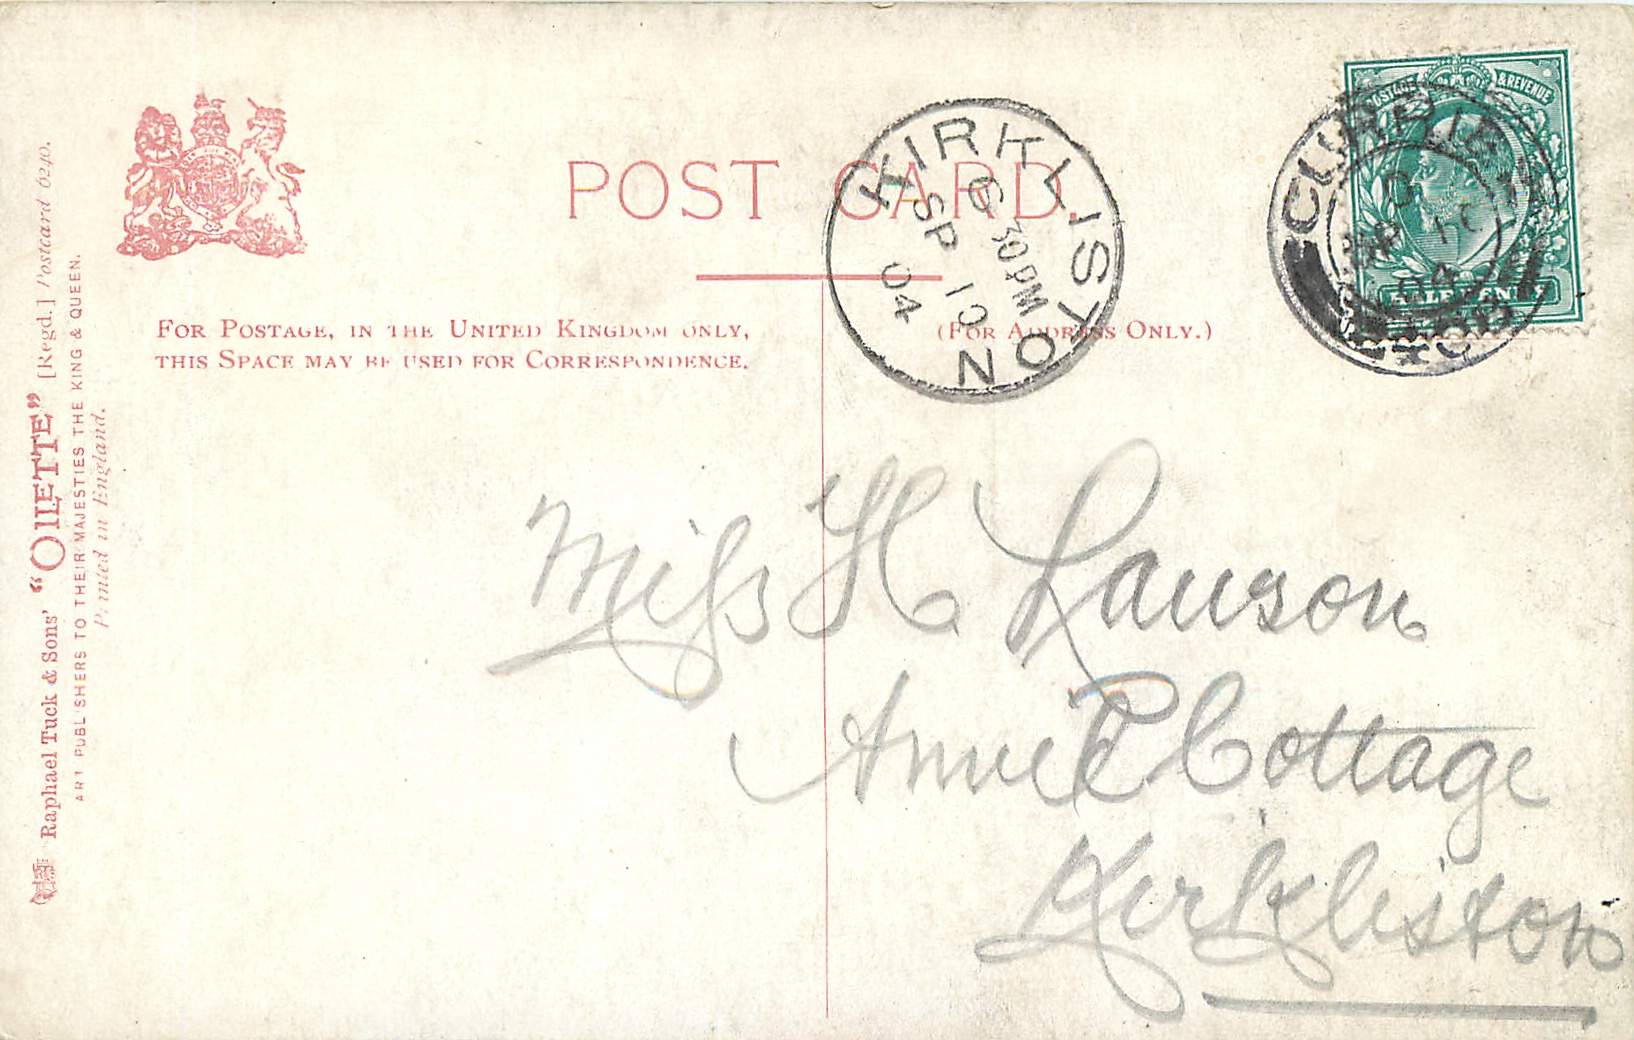 POST CARD.
FOR POSTAGE, IN THE UNITED KINGDOM ONLY,
THIS SPACE MAY BE USED FOR CORRESPONDENCE.
(FOR ADDRESS ONLY.)
Raphael Tuck & Sons' "OILETTE" [Regd.] Postcard 6240.
ART PUBLISHERS TO THEIR MAJESTIES THE KING & QUEEN.
Printed in England.
KIRKLISTON
6 30PM
SP 10
04
POSTAGE & REVENUE
HALFPENNY
CURRIE
SP 10
04
Miss H Lawson
Annie Cottage
Kirkliston